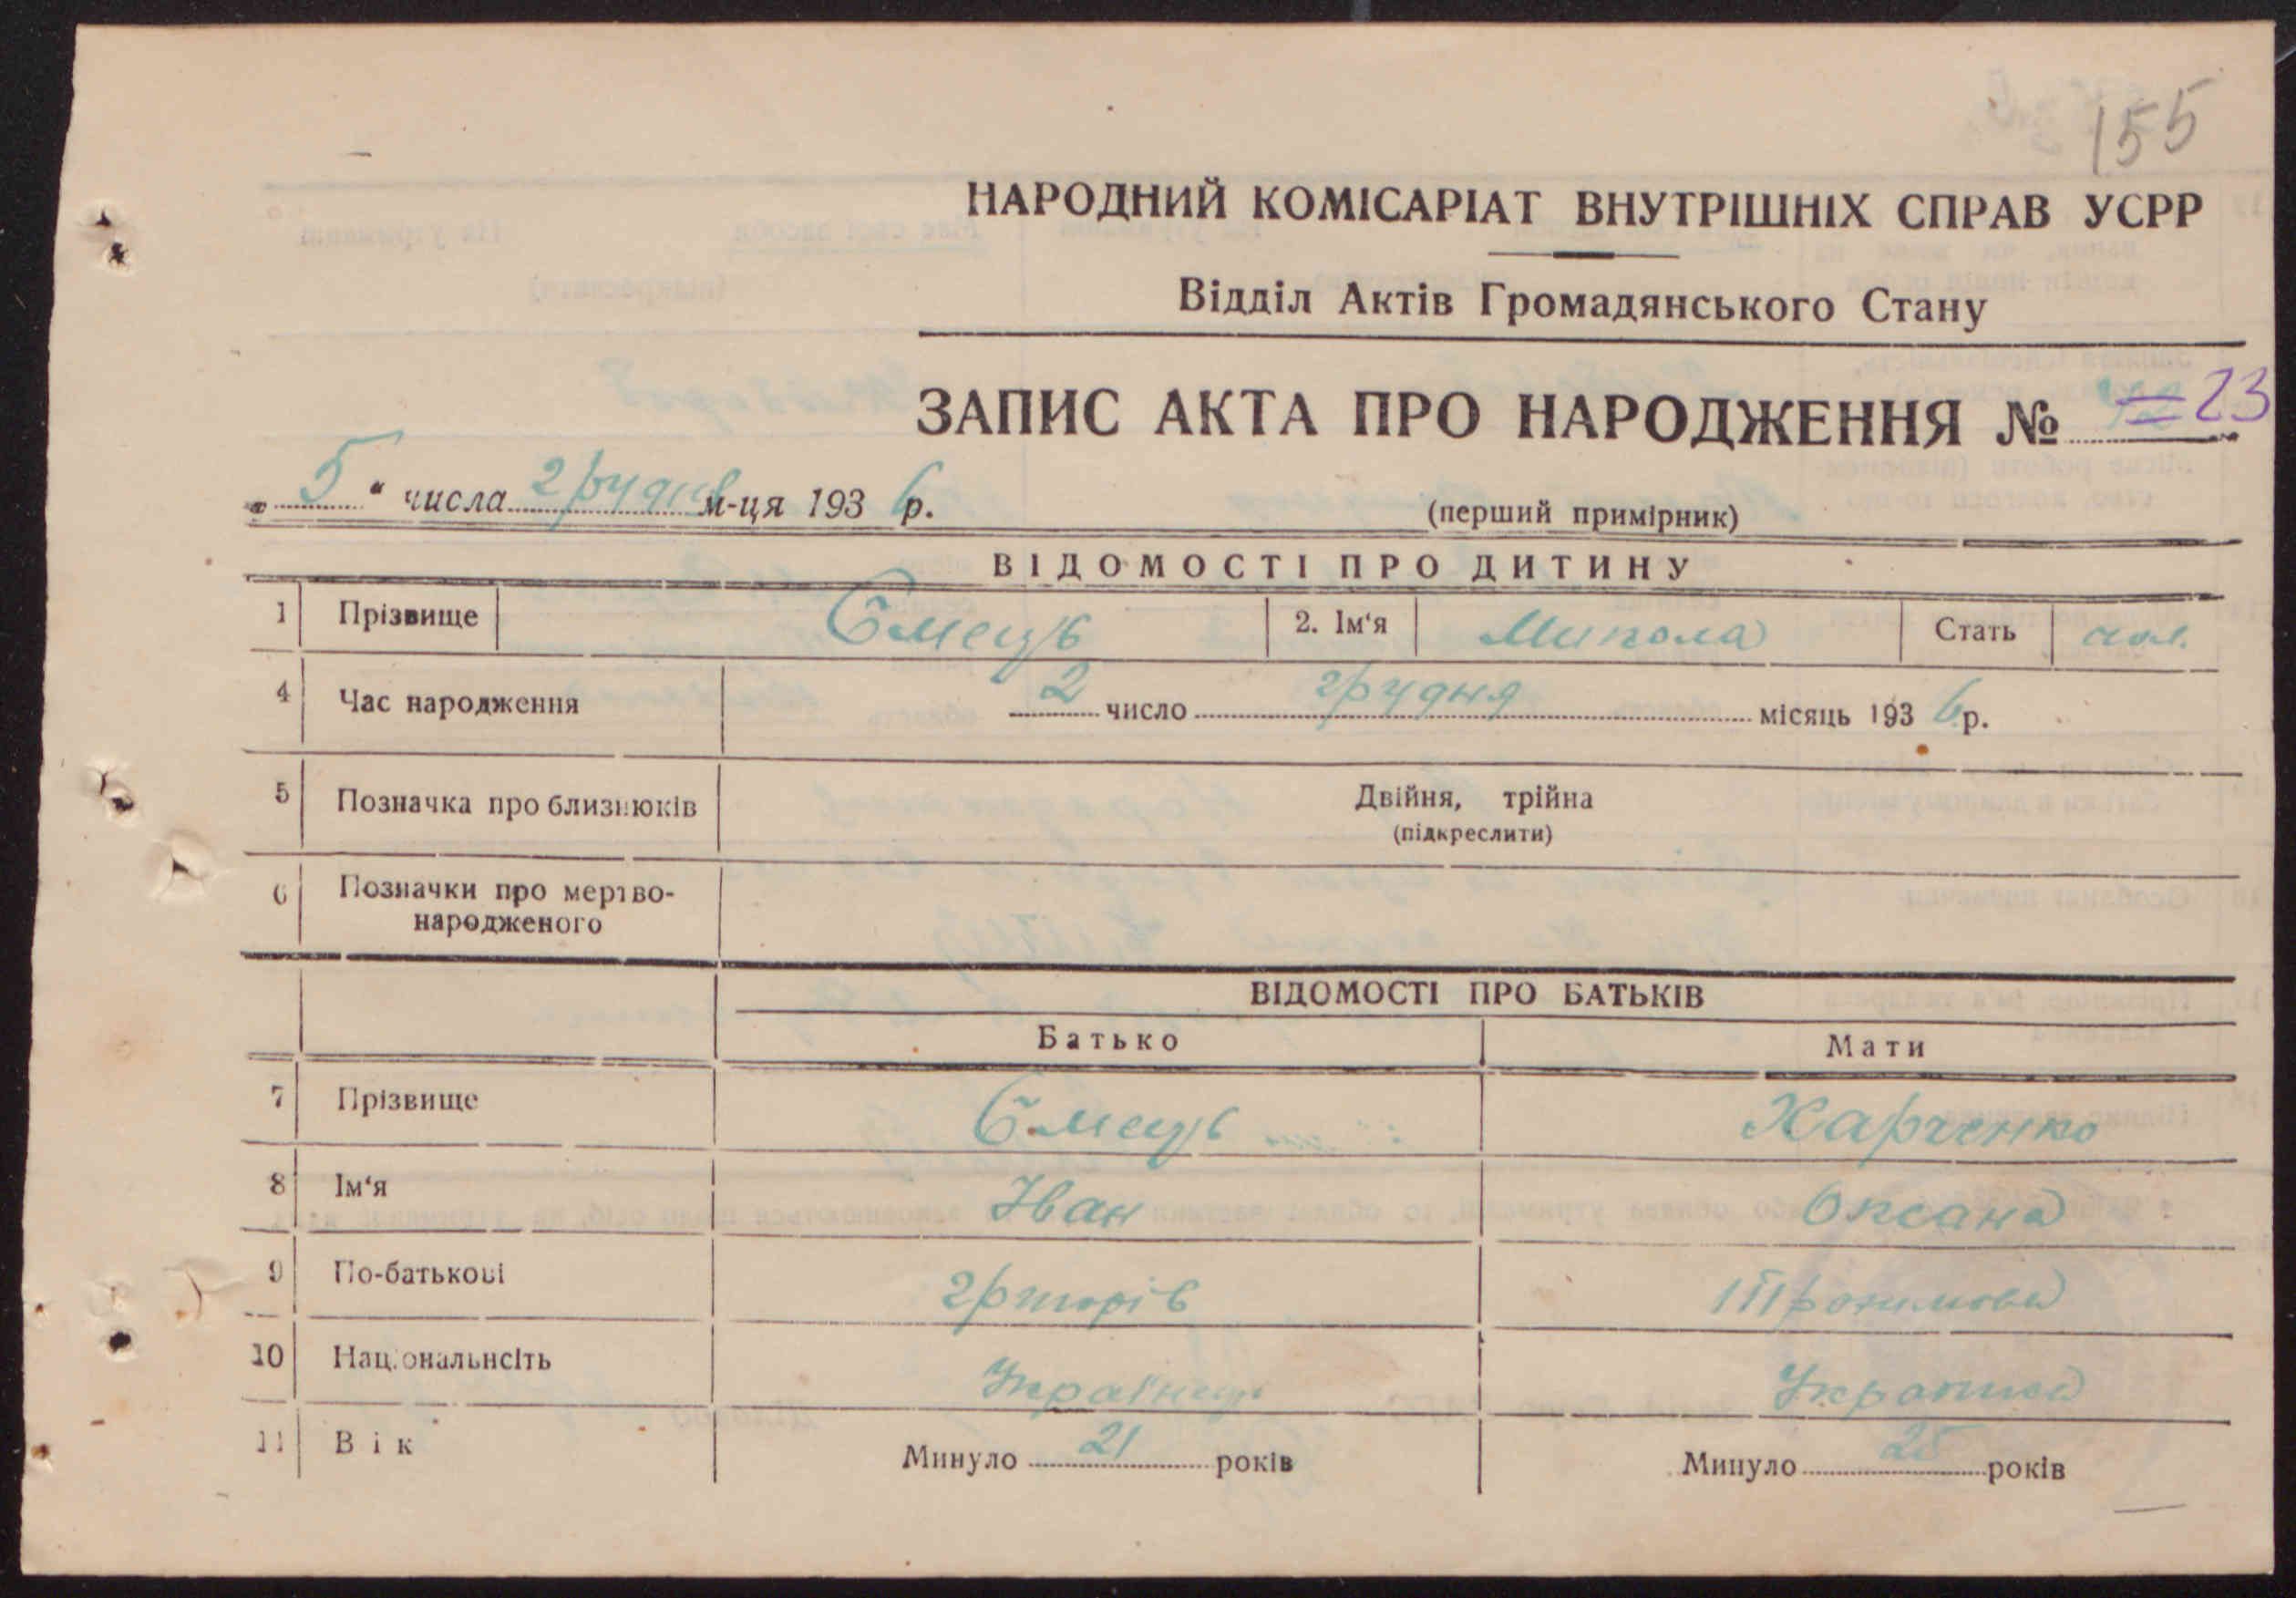 155
НАРОДНИЙ КОМІСАРІАТ ВНУТРІШНІХ СПРАВ УСРР
Відділ Актів Громадянського Стану
ЗАПИС АКТА ПРО НАРОДЖЕННЯ № 23
„ 5 “ числа грудня м-ця 1936 р.
(перший примірник)
ВІДОМОСТІ ПРО ДИТИНУ
1 Прізвище Ємець 2. Ім‘я Микола Стать чол.
4 Час народження 2 число грудня місяць 1936 р.
5 Позначка про близнюків Двійня, трійна
(підкреслити)
6 Позначки про мертво-
народженого
ВІДОМОСТІ ПРО БАТЬКІВ
Батько Мати
7 Прізвище Ємець Харченко
8 Ім‘я Іван Оксана
9 По-батькові
10 Національнсіть Українець
11 Вік Минуло 21 років Минуло 25 років